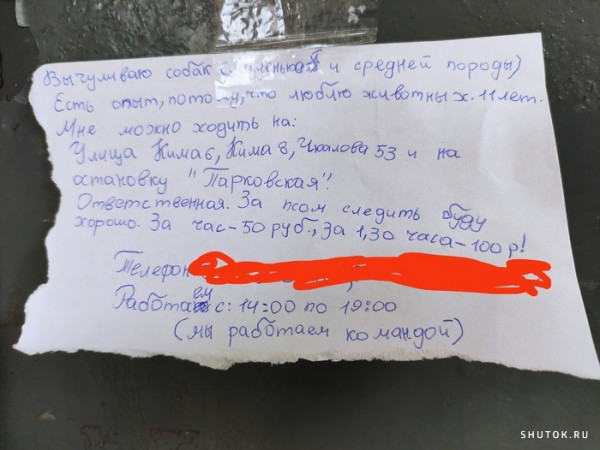 Выгуливаю собак (маленькой и средней породы)
Есть опыт, потому, что люблю животных. 11 лет.
Мне можно ходить на:
Улица Кима 6, Кима 8, Чкалова 53 и на
остановку "Парковская".
Ответственная. За псом следить буду
хорошо. За час - 50 руб., За 1,30 часа - 100 р!
Телефон
Работаем с: 14:00 по 19:00
(мы работаем командой)
SHUTOK.RU